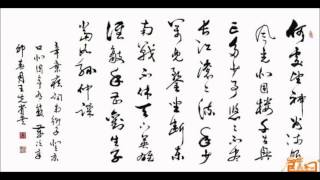 何處望神州滿眼
風光北固樓千古興
亡多少事悠悠不盡
長江滾滾流年少
萬兜鍪坐斷東
南戰未休天下英雄
誰敵手曹劉生子
當如孫仲謀
辛棄疾詞南鄉子登京
口北固亭有懷